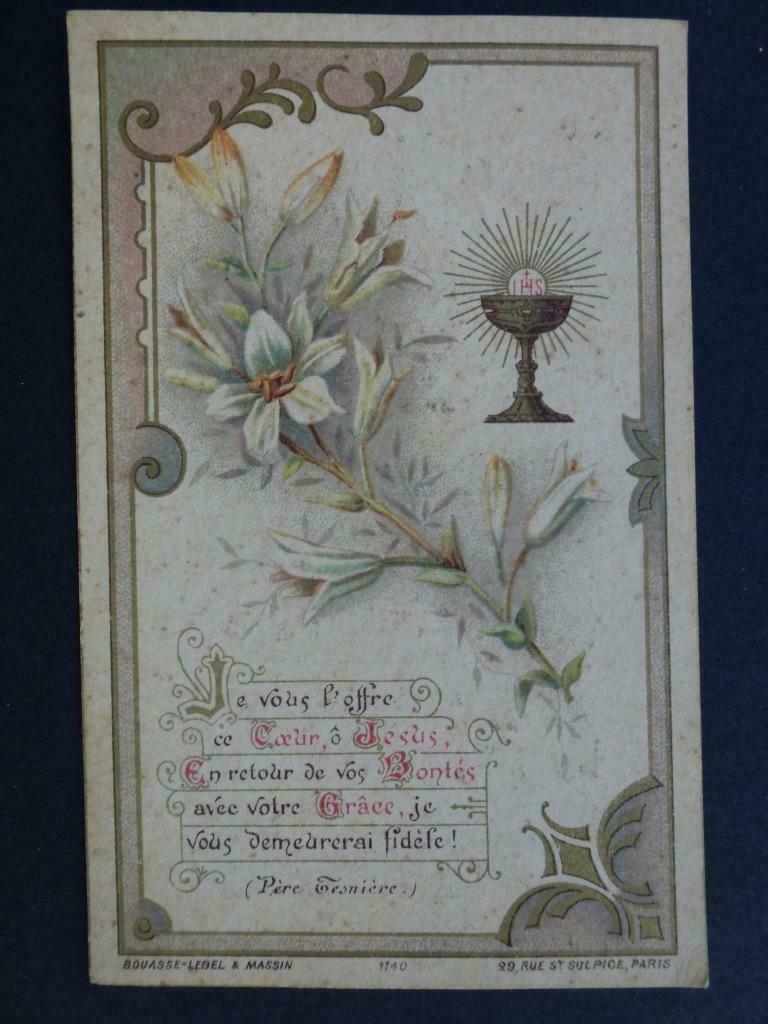 IHS
Je vous l'offre
ce Cœur, ô Jesus,
En retour de vos Bontés
avec votre Grâce, je
vous demeurerai fidèle !
(Père Tesnière.)
BOUASSE-LEBEL & MASSIN 1140 29, RUE ST SULPICE, PARIS